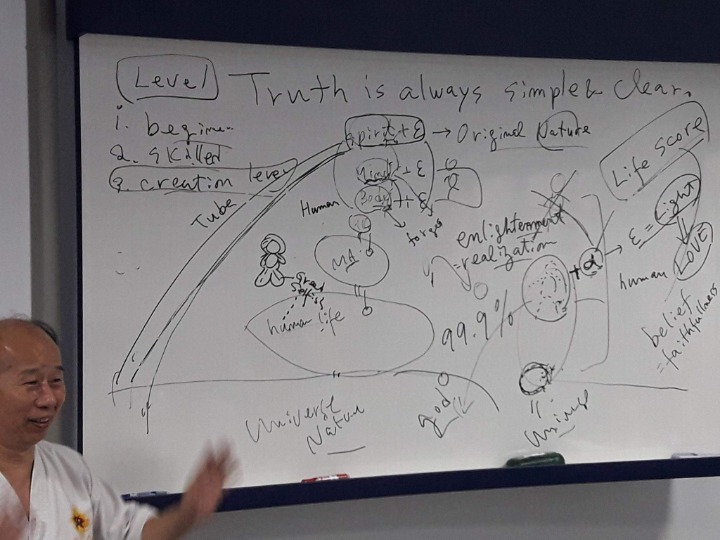 Level
Truth is always simple & clear.
1. begine
2. skilled
3. creation level
Spirit + ε → Original Nature
Mind + ε
Body + ε
Human
Tube
forges
enlightenment
= realization
Life Score
+ α → ε = Light
human LOVE
belief
= faithfullness
Md
human life
99.9%
god
Universe
Nature